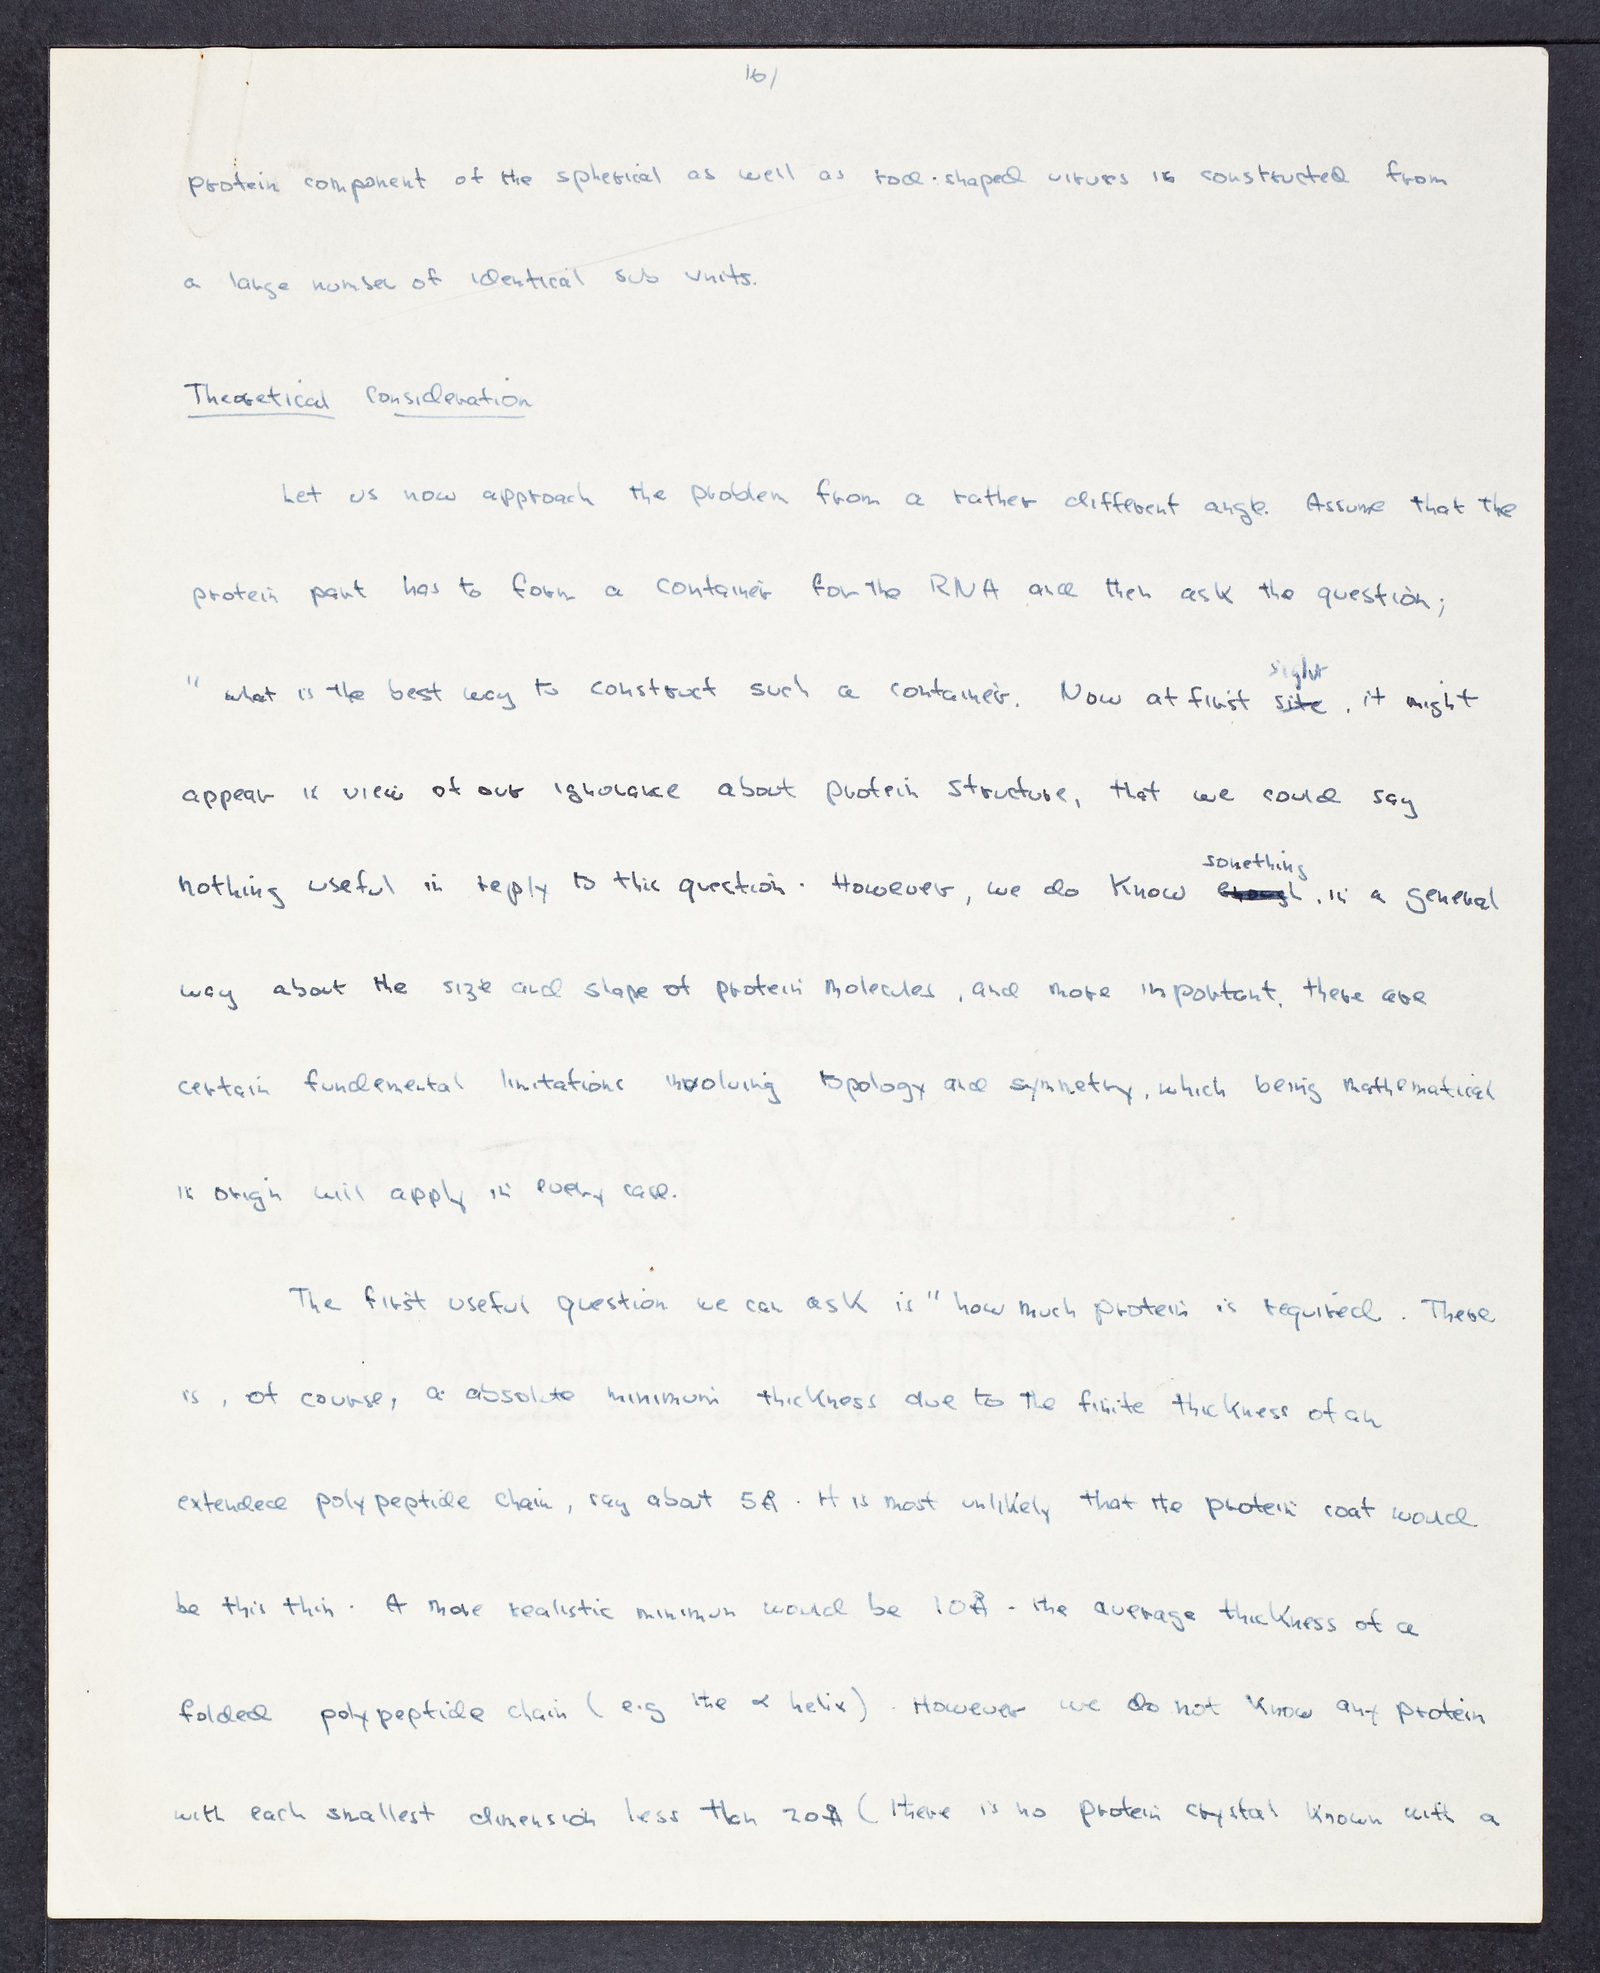 16/
protein component of the spherical as well as rod-shaped viruses is constructed from
a large number of identical sub units.
Theoretical Consideration
Let us now approach the problem from a rather different angle. Assume that the
protein part has to form a container for the RNA and then ask the question;
sight
" what is the best way to construct such a container. Now at first site, it might
appear in view of our ignorance about protein structure, that we could say
something
nothing useful in reply to this question. However, we do know enough, in a general
way about the size and shape of protein molecules, and more important, there are
certain fundemental limitations involving topology and symmetry, which being mathematical
in origin will apply in every case.
The first useful question we can ask is " how much protein is required. There
is, of course, a absolute minimum thickness due to the finite thickness of an
extended polypeptide chain, say about 5Å. It is most unlikely that the protein coat would
be this thin. A more realistic minimum would be 10Å - the average thickness of a
folded polypeptide chain (e.g the α helix). However we do not know any protein
with each smallest dimension less than 20Å (there is no protein crystal known with a